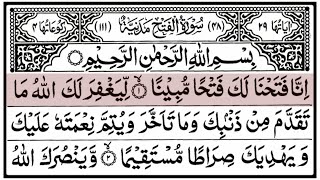 اٰیَاتُهَا ٢٩ (٤٨) سُوْرَةُ الْفَتْحِ مَدَنِيَّةٌ (١١١) رُكُوْعَاتُهَا ٤
بِسْمِ اللّٰهِ الرَّحْمٰنِ الرَّحِيْمِ
اِنَّا فَتَحْنَا لَكَ فَتْحًا مُّبِيْنًا ۙ﴿١﴾ لِّيَغْفِرَ لَكَ اللّٰهُ مَا
تَقَدَّمَ مِنْ ذَنْۢبِكَ وَمَا تَاَخَّرَ وَيُتِمَّ نِعْمَتَهٗ عَلَيْكَ
وَيَهْدِيَكَ صِرَاطًا مُّسْتَقِيْمًا ۙ﴿٢﴾ وَّيَنْصُرَكَ اللّٰهُ